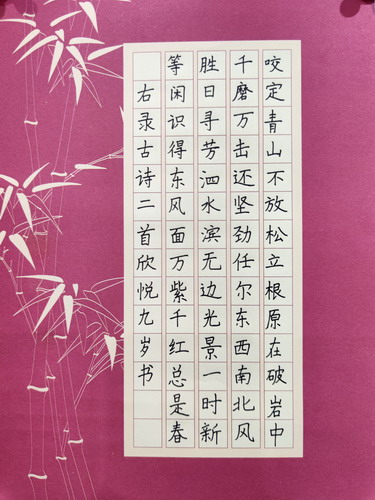 咬定青山不放松立根原在破岩中
千磨万击还坚劲任尔东西南北风
胜日寻芳泗水滨无边光景一时新
等闲识得东风面万紫千红总是春
右录古诗二首欣悦九岁书